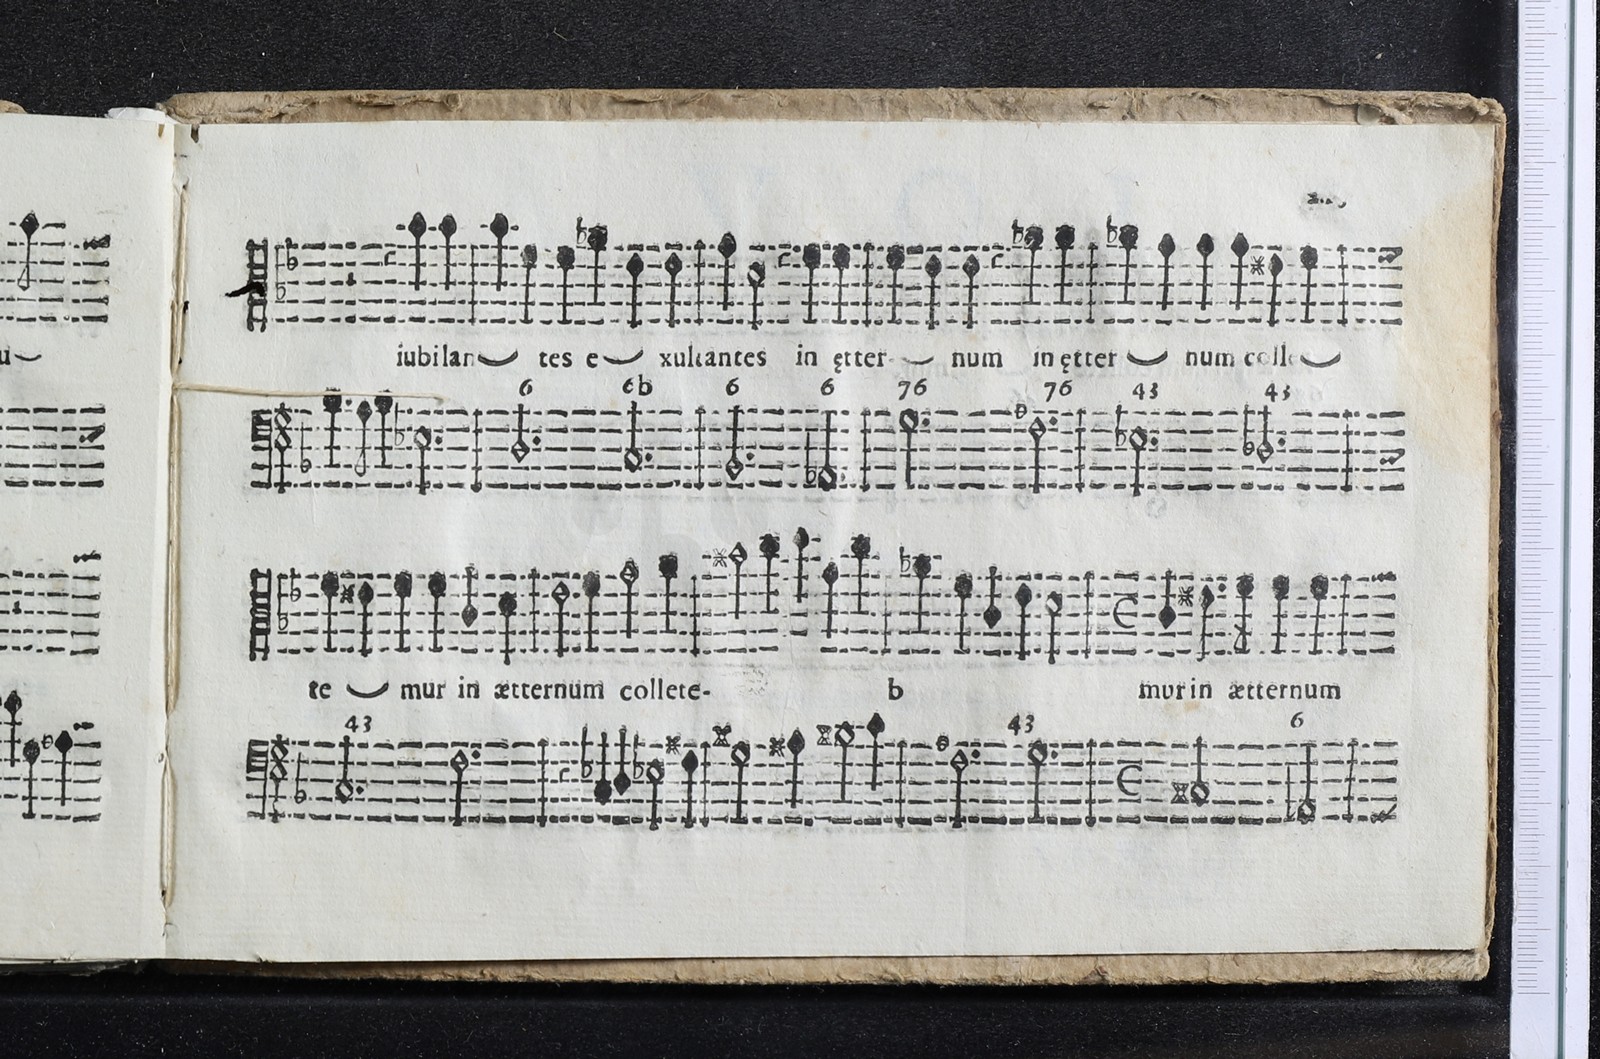 u
iubilan tes e xultantes in ętter num in ętter num colle
6 6b 6 6 76 76 43 43
te mur in ætternum collete- b murin ætternum
43 43 6